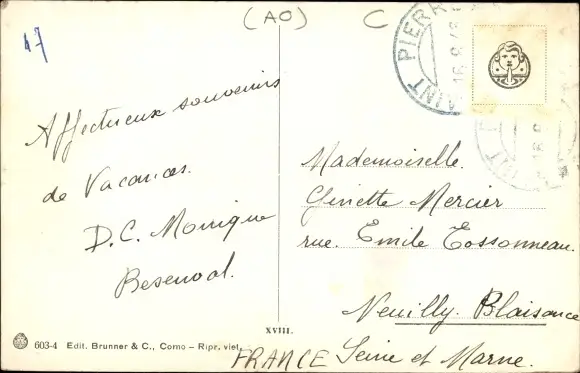 (AO) C
47
SAINT PIERR
16.9
Affectueux souvenirs
de Vacances.
D.C. Monique
Besenval.
Mademoiselle
Ginette Mercier
rue. Emile Cossonneau.
Neuilly. Plaisance
Seine et Marne.
FRANCE
XVIII.
603-4 Edit. Brunner & C., Como – Ripr. viet.